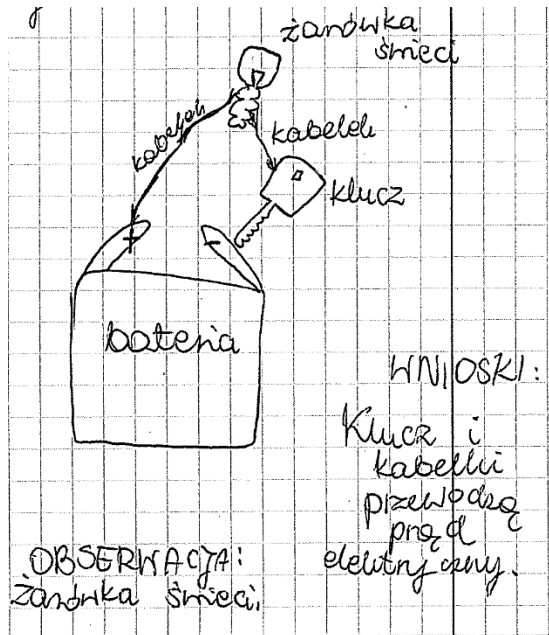 żarówka
świeci
kabelek
kabelek
klucz
+
-
bateria
WNIOSKI:
Klucz i
kabelki
przewodzą
prąd
elektryczny.
OBSERWACJA:
żarówka świeci.